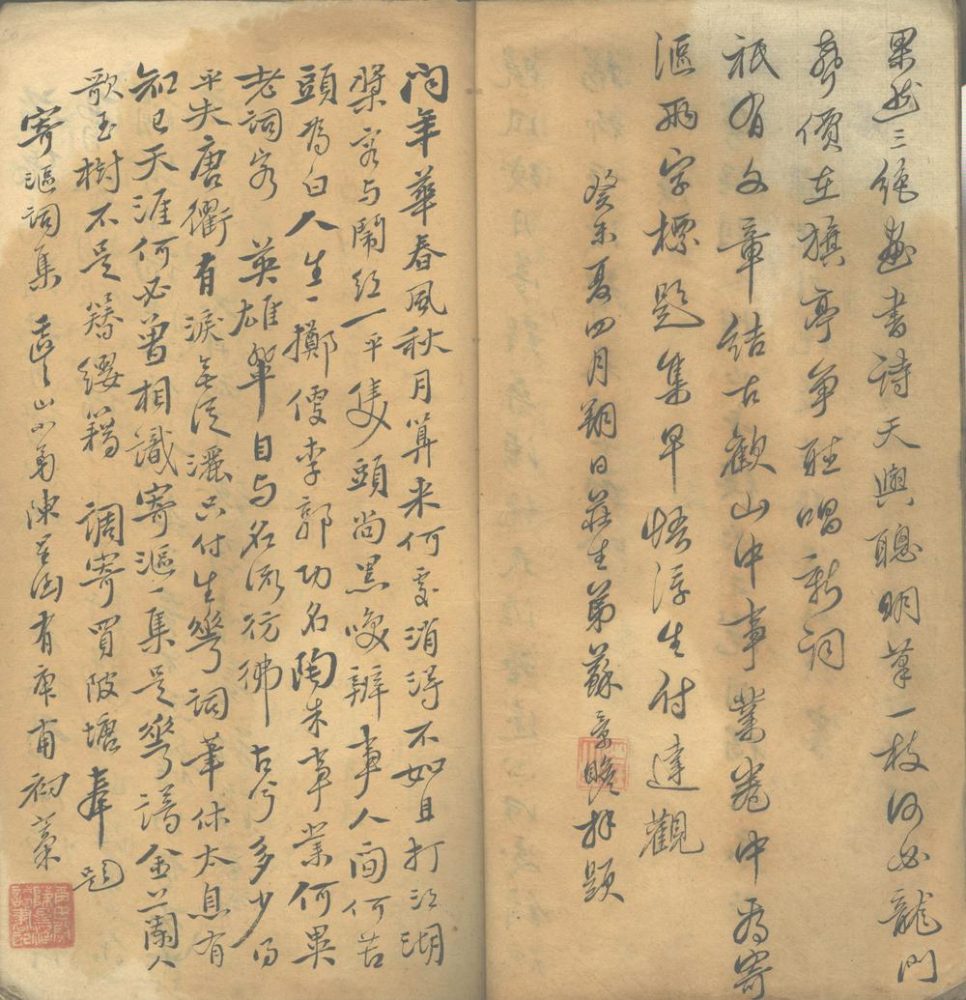 果然三絕畫書詩天與聰明筆一枝何必龍門
聲價在旗亭爭聽唱新詞
祇有文章結古歡山中事業卷中看寄
漚兩字標題集早悟浮生付達觀
癸未夏四月朔日莊生弟蘇景瞻拜題
問年華春風秋月算来何處消得不如且打江湖
槳容与鬧紅一平隻頭尚黑嘆辦事人間何苦
頭為白人生一擲儘李郭功名陶朱事業何異
老詞客 英雄輩自与名流彷彿 古今多少
平失唐衢有淚無從灑只付生花詞筆休太息有
知己天涯何必曾相識寄漚一集是花譜金蘭人
歌玉樹不是簪纓籍 調寄買陂塘奉題
寄漚詞集 山弟陳 有 甫初稾